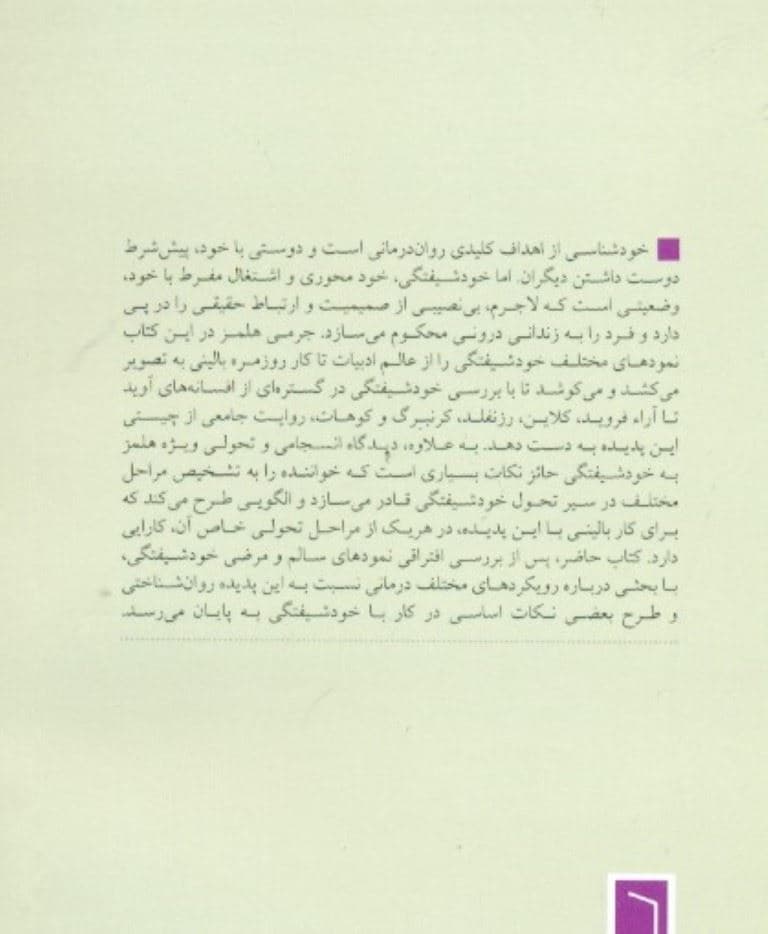 خودشناسی از اهداف کلیدی روان‌درمانی است و دوستی با خود، پیش‌شرط
دوست داشتن دیگران. اما خودشیفتگی، خود محوری و اشتغال مفرط با خود،
وضعیتی است که لاجرم، بی‌نصیبی از صمیمیت و ارتباط حقیقی را در پی
دارد و فرد را به زندانی درونی محکوم می‌سازد. جرمی هلمز در این کتاب
نمودهای مختلف خودشیفتگی را از عالم ادبیات تا کار روزمره بالینی به تصویر
می‌کشد و می‌کوشد تا با بررسی خودشیفتگی در گستره‌ای از افسانه‌های آوید
تا آراء فروید، کلاین، رزنفلد، کرنبرگ و کوهات، روایت جامعی از چیستی
این پدیده به دست دهد. به علاوه، دیدگاه انسجامی و تحولی ویژه هلمز
به خودشیفتگی حائز نکات بسیاری است که خواننده را به تشخیص مراحل
مختلف در سیر تحول خودشیفتگی قادر می‌سازد و الگویی طرح می‌کند که
برای کار بالینی با این پدیده، در هریک از مراحل تحولی خاص آن، کارایی
دارد. کتاب حاضر، پس از بررسی افتراقی نمودهای سالم و مرضی خودشیفتگی،
با بحثی درباره رویکردهای مختلف درمانی نسبت به این پدیده روان‌شناختی
و طرح بعضی نکات اساسی در کار با خودشیفتگی به پایان می‌رسد.